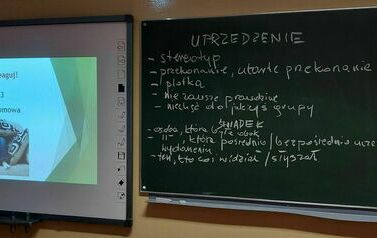 eaguj!
3
omowa
UPRZEDZENIE
- stereotyp
- przekonanie, utarte przekonanie
- plotka
- nie zawsze prawdziwe
- niechęć do jakiejś grupy
ŚWIADEK
- osoba, która była obok
- II - , która pośrednio / bezpośrednio ucze
wydarzeniu
- ten, kto coś widział / słyszał